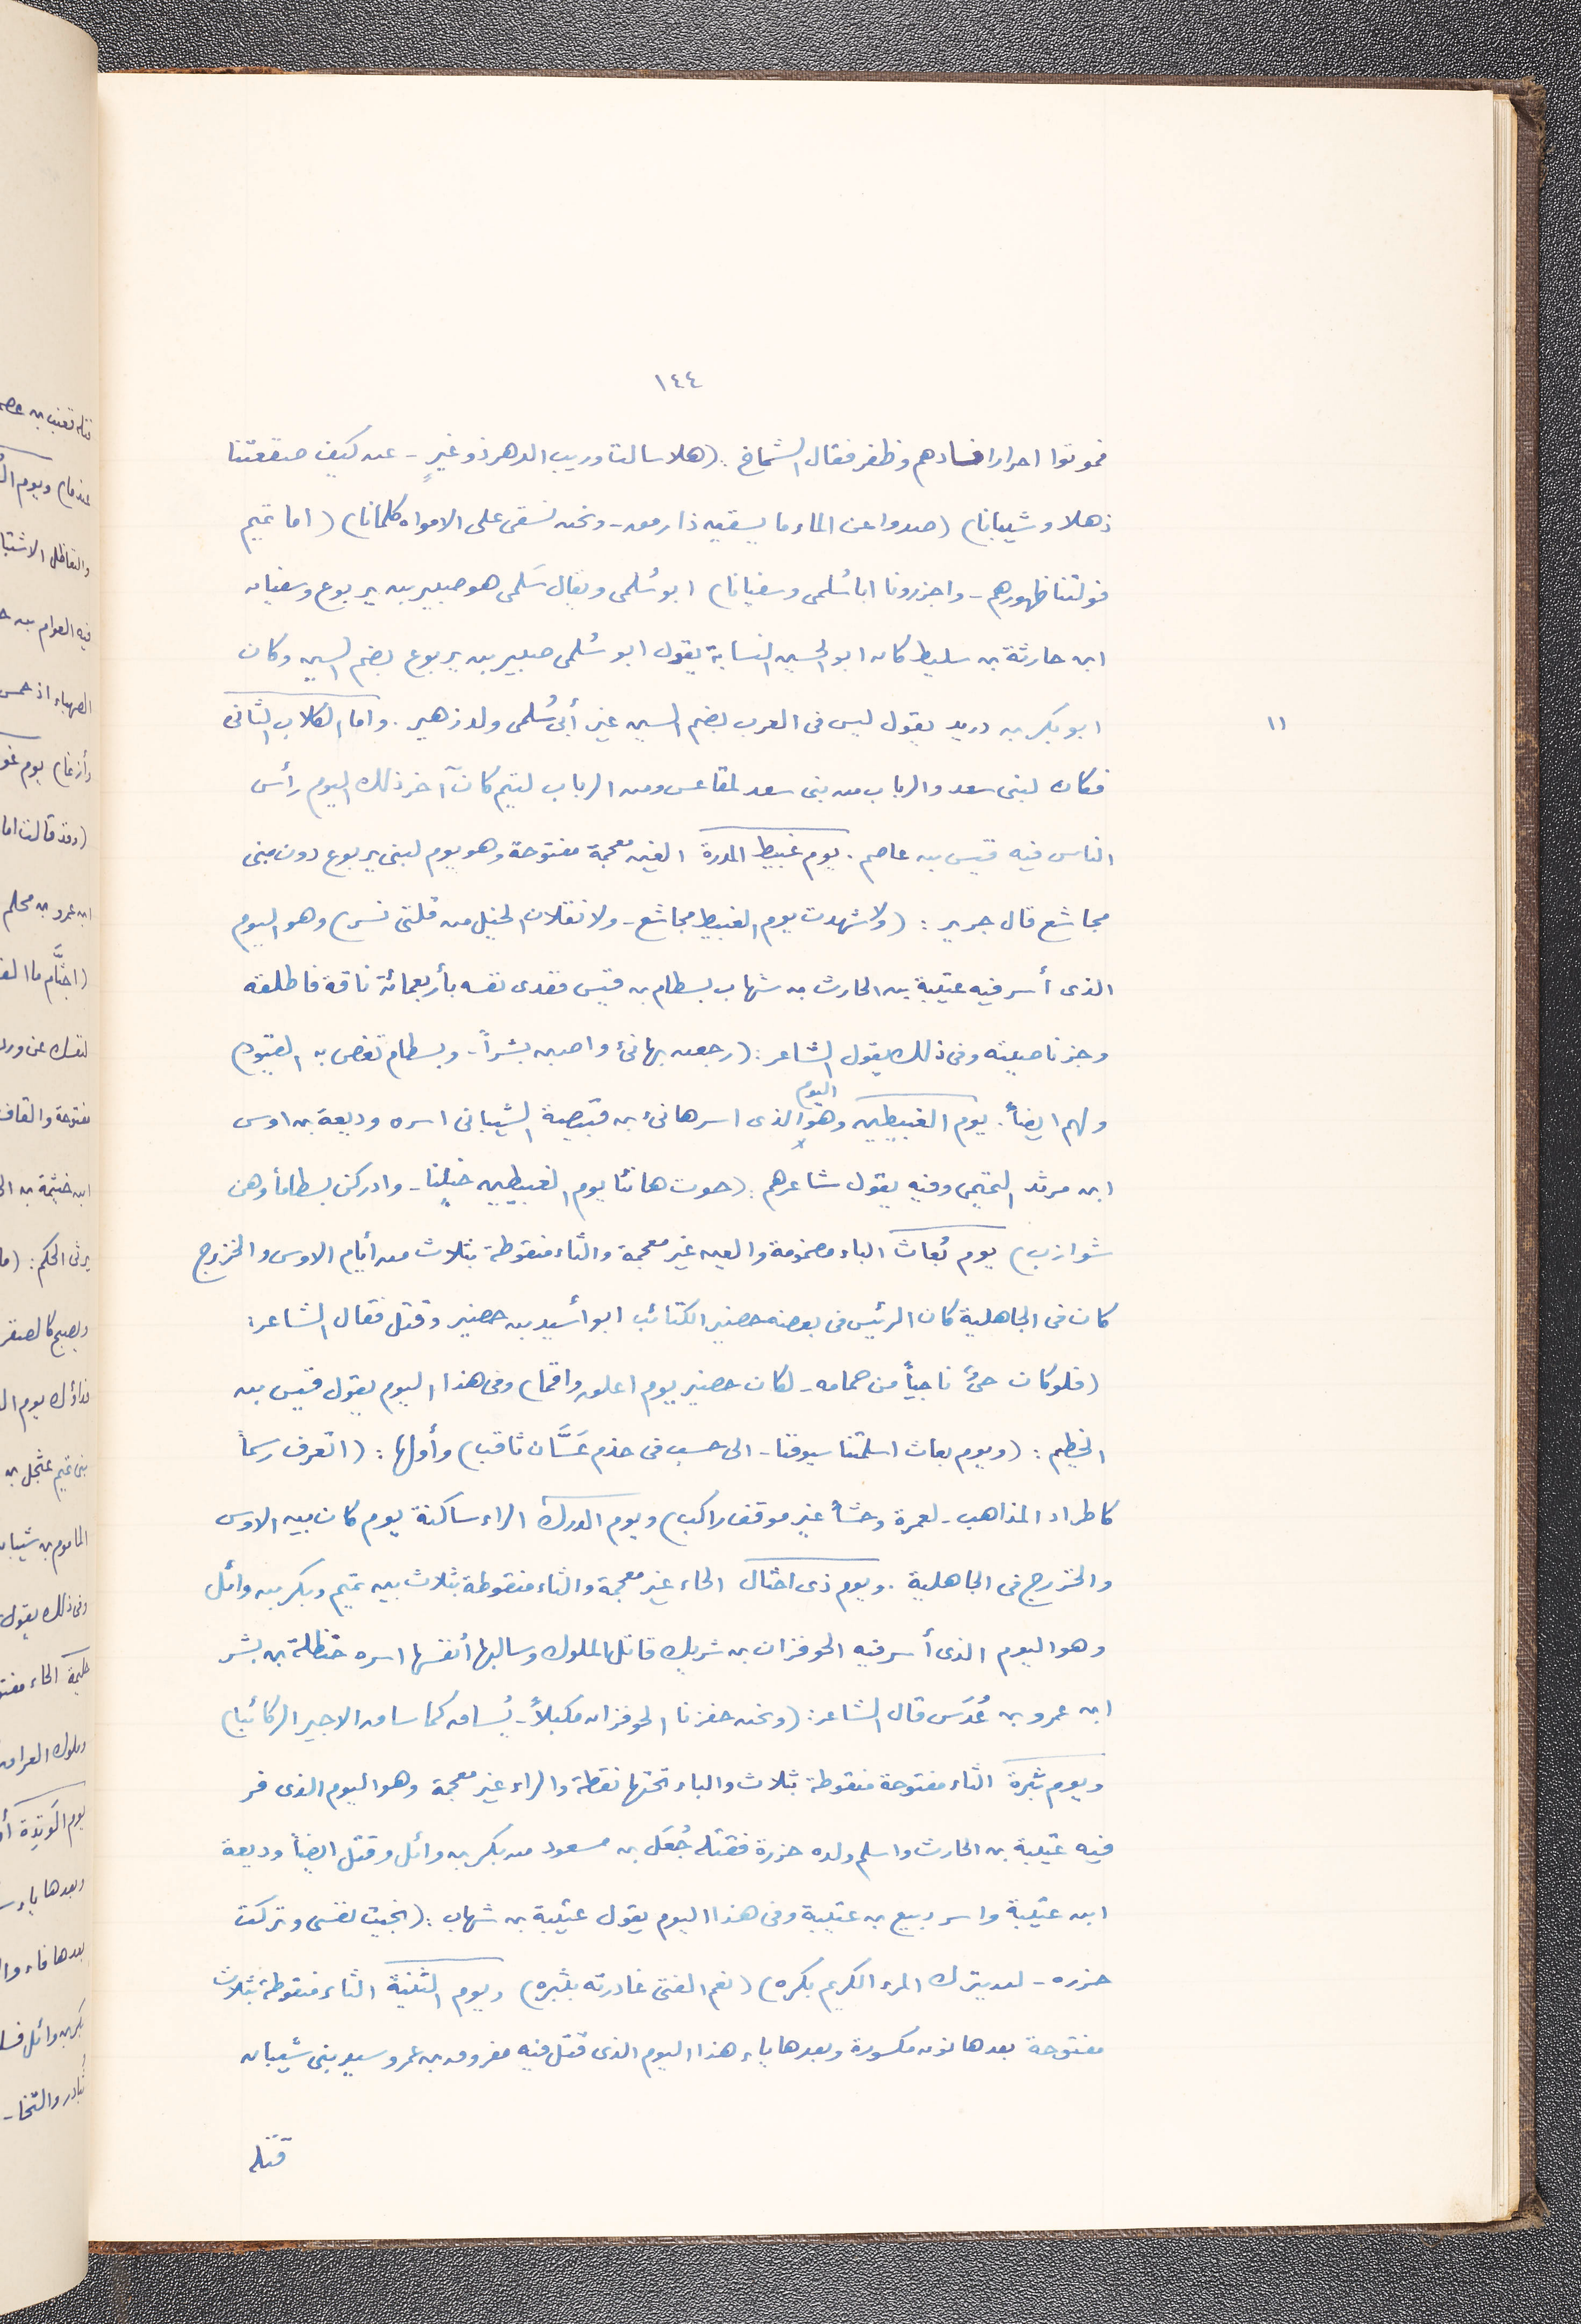 ١٤٤
فموتوا احرارا فنادهم وظفر فقال الشماخ: (هلا سالت وريب الدهر ذو غيرٍ - عن كيف صقعتنا
ذهلا وشيبانا) (صدوا عن الماء ما يسقيه ذا رمق - ونحن نسقى على الامواه كلمانا) (اما تميم
فولتنا ظهورهم - واجزرونا ابا سُلمى وسفيانا) ابو سُلمى ويقال سَلمى هو صبير بن يربوع وسفيان
ابن حارثة بن سليط كان ابو الحسين النسابة يقول ابو سُلمى صبير بن يربوع بضم السين وكان
ابو بكر بن دريد يقول ليس فى العرب بضم السين غير أبى سُلمى ولد زهير. واما الكلاب الثانى
١١
فكان لبنى سعد والرباب من بنى سعد لمقاعس ومن الرباب لتيم كان آخر ذلك اليوم رأس
الناس فيه قيس بن عاصم. يوم غبيط المدرة الغين معجمة مفتوحة وهو يوم لبنى يربوع دون بنى
مجاشع قال جرير: (ولا شهدت يوم الغبيط مجاشع - ولا نقلان الخيل من قلتى نسر) وهو اليوم
الذى أسر فيه عتيبة بن الحارث بن شهاب بسطام بن قيس ففدى نفسه بأربعمائة ناقة فاطلقه
وجز ناصيته وفى ذلك يقول الشاعر: (رجعن بهانئ واصبن بشراً - وبسطام تغص به القيود)
ولهم ايضاً. يوم الغبيطين وهو اليوم الذى اسر هانئ بن قبيصة الشيبانى اسره وديعة بن اوس
ابن مرثد التميمى وفيه يقول شاعرهم: (حوت هانئا يوم الغبيطين خيلنا - وادركن بسطاماً وهن
شوازب) يوم بُعاث الباء مضمومة والعين غير معجمة والثاء منقوطة بثلاث من أيام الاوس والخزرج
كان فى الجاهلية كان الرئيس فى بعضه حضير الكتائب ابو أسيد بن حضير وقتل فقال الشاعر:
(فلو كان حىٌّ ناجياً من حمامه - لكان حضير يوم اغلق واقما) وفى هذا اليوم يقول قيس بن
الخطيم: (ويوم بعاث اسلمتنا سيوفنا - الى حسب فى جذم غَسَّان ثاقب) وأولها: (اتعرف رسماً
كاطراد المذاهب - لعمرة وحشاً غير موقف راكب) ويوم الدرك الراء ساكنة يوم كان بين الاوس
والخزرج فى الجاهلية. ويوم ذى احثال الحاء غير معجمة والثاء منقوطة بثلاث بين تميم وبكر بن وائل
وهو اليوم الذى أسر فيه الحوفزان بن شريك قاتل الملوك وسالبها أنفسها اسره حنظلة بن بشر
ابن عمرو بن عُدَس قال الشاعر: (ونحن حفزنا الحوفزان مكبلاً - يُساق كما ساق الاجير الركائبا)
ويوم ثبرة الثاء مفتوحة منقوطة بثلاث والباء تحتها نقطة والراء غير معجمة وهو اليوم الذى فر
فيه عتيبة بن الحارث واسلم ولده حزرة فقتله جُعَل بن مسعود من بكر بن وائل وقتل ايضاً وديعة
ابن عتيبة واسر ربيع بن عتيبة وفى هذا اليوم يقول عتيبة بن شهاب: (نجيت نفسى وتركت
حزره - لم يترك المرء الكريم بكره) (نعم الفتى غادرته بثبره) ويوم الثنية الثاء منقوطة بثلاث
مفتوحة بعدها نون مكسورة وبعدها ياء هذا اليوم الذى قتل فيه مفروق بن عمرو سيد بنى شيبان
قتله